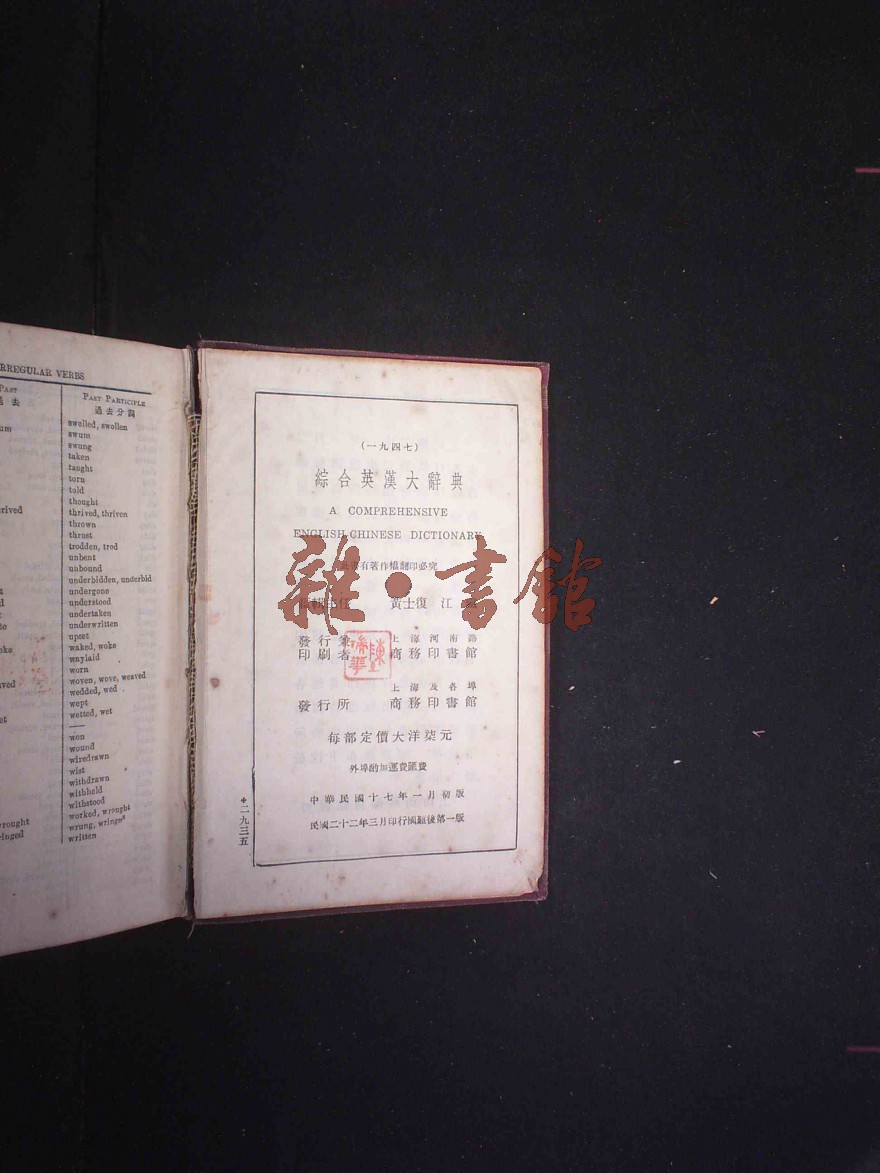 IRREGULAR VERBS
PAST
過去
PAST PARTICIPLE
過去分詞
swelled, swollen
swum
swung
taken
taught
torn
told
thought
thrived, thriven
thrown
thrust
trodden, trod
unbent
unbound
underbidden, underbid
undergone
understood
undertaken
underwritten
upset
waked, woke
waylaid
worn
woven, wove, weaved
wedded, wed
wept
wetted, wet
won
wound
wiredrawn
wist
withdrawn
withheld
withstood
worked, wrought
wrung, wringed
written
(一九四七)
綜合英漢大辭典
A COMPREHENSIVE
ENGLISH-CHINESE DICTIONARY
此書有著作權翻印必究
黃士復 江
發行兼 上海河南路
印刷者 商務印書館
上海及各埠
發行所 商務印書館
每部定價大洋柒元
外埠酌加運費匯費
中華民國十七年一月初版
民國二十二年三月印行國難後第一版
二九三五
雜·書館